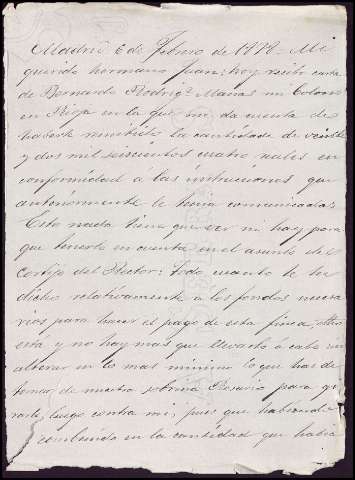 Madrid 6 de Febrero de 1878 - Mi
querido hermano Juan: hoy recibo carta
de Bernardo Rodrig.z Mañas mi Colono
en Rioja en la que me da cuenta de
haberte remitido la cantidad de veinte
y dos mil seiscientos cuatro reales en
conformidad á las instrucciones que
anteriormente le tenia comunicadas.
Esto nada tiene que ver ni hay para
que tenerlo en cuenta en el asunto del
Cortijo del Rector: todo cuanto te he
dicho relativamente á los fondos necesa
rios para hacer el pago de esta finca,
esta y no hay mas que llevarlo á cabo sin
alterar en lo mas minimo lo que has de
tomar de nuestro sobrino para gi
rarlo luego contra mi, pues que habiendo
convenido en la cantidad que habia